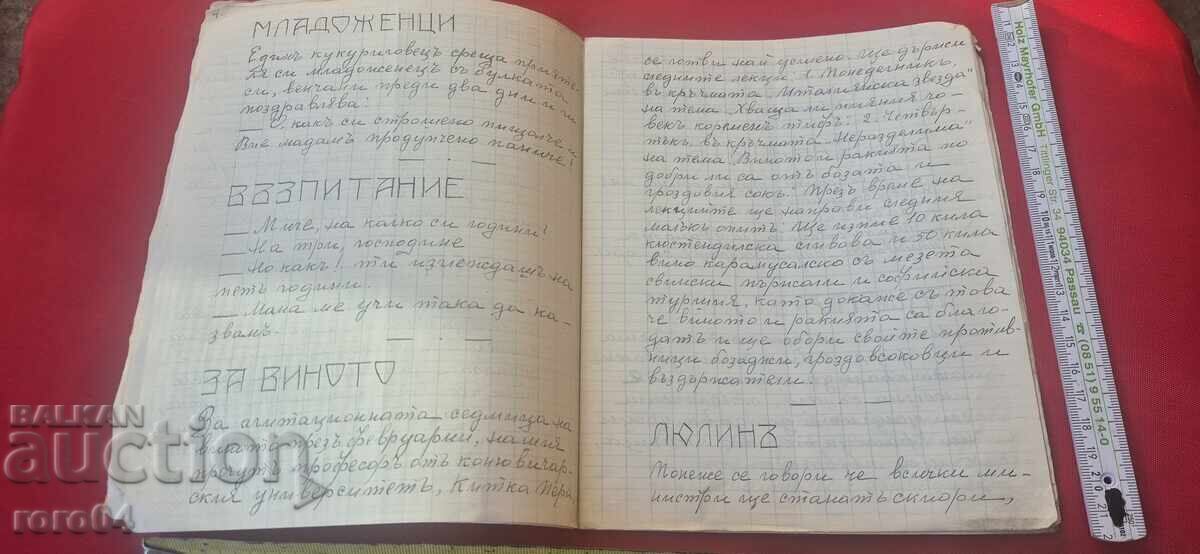 МЛАДОЖЕНЦИ
Единъ кукуриговецъ среща приятел-
я си младоженецъ съ булката
си, венчали преди два дни и ги
поздравява:
— О, какъ си строшено пищялче и
Вие мадамъ продупчено паниче!
ВЪЗПИТАНИЕ
— Миче, на колко си години?
— На три, господине
— Но какъ! ти изглеждашъ на
петь години.
— Мама ме учи така да ка-
звамъ.
ЗА ВИНОТО
За агитационната седмица на
виното презъ февруарий, нашия
прочутъ професоръ отъ
ския университетъ, Китка
се готви най усилено. Ще държи
следните лекции: 1. Понеделникъ,
въ кръчмата „Италиянска звезда"
на тема „Хваща ли пияния чо-
векъ коременъ тифъ". 2. Четвър-
тъкъ, въ кръчмата „Неразделима"
на тема „Виното и ракията по
добри ли са отъ бозата и
гроздовия сокъ". Презъ време на
лекциите ще направи следния
малъкъ опитъ. Ще изпие 10 кила
кюстендилска сливова и 50 кила
вино карамусалско съ мезета
свински пържоли и софийска
туршия, като докаже съ това
че виното и ракията са благо-
датъ и ще обори своите против-
ници бозаджии, гроздовсоковци и
въздържатели.
ЛЮЛИНЪ
Понеже се говори че всички ми-
нистри ще станатъ скиори,
Holz Mayrhofer GmbH
94034 Passau ☎ (0851) 9 55 14-0
BALKAN
auction
roro04